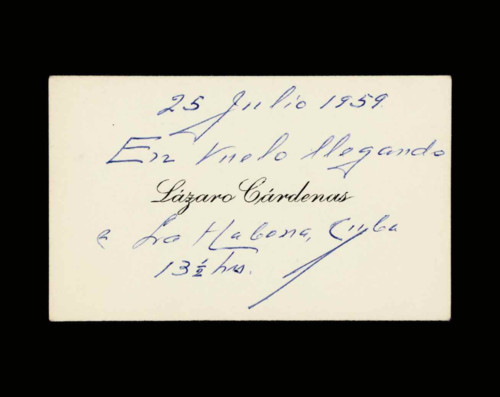 25 Julio 1959.
En vuelo llegando
Lázaro Cárdenas
a La Habana, Cuba
13½ hs.